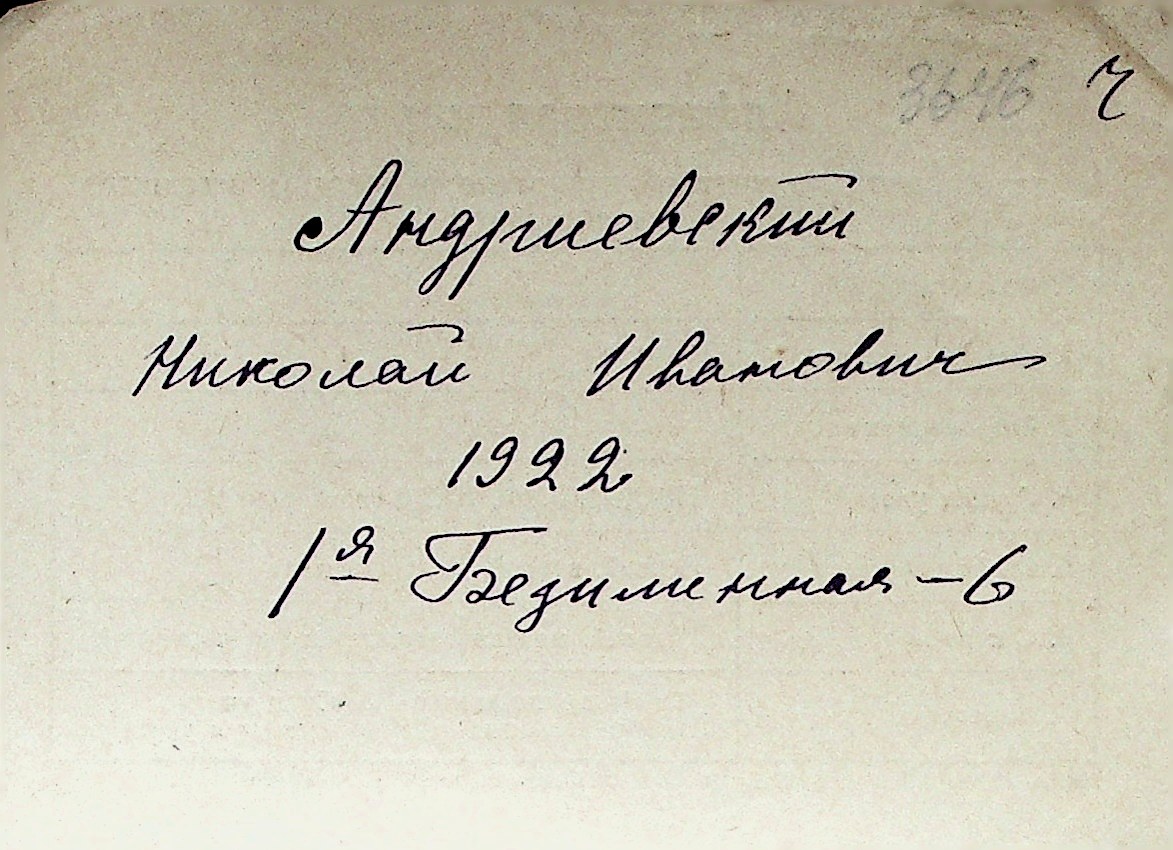 3646 ч
Андриевский
Николай Иванович
1922
1я Безименная - 6